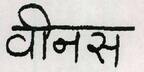 वीनस